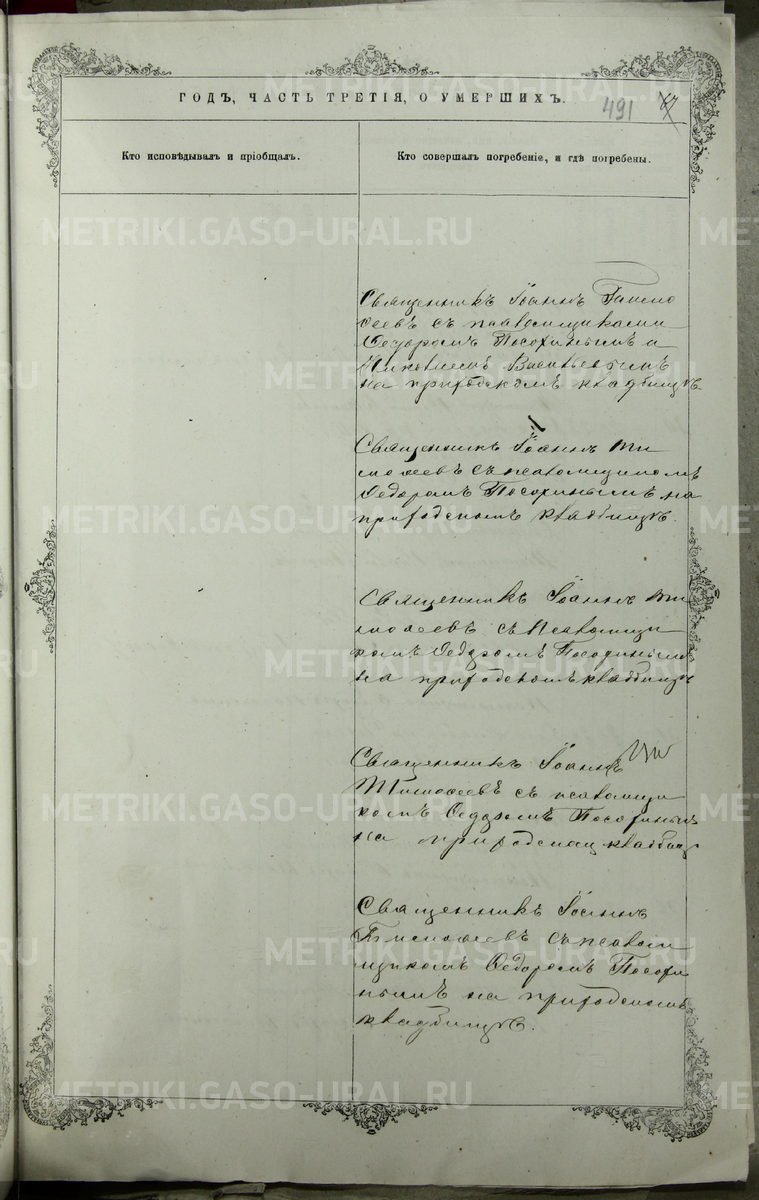 ГОДЪ, ЧАСТЬ ТРЕТІЯ, О УМЕРШИХЪ.
491
Кто исповѣдывалъ и пріобщалъ.
Кто совершалъ погребеніе, и гдѣ погребены.
Священникъ Іоаннъ Тимо
феевъ съ псаломщиками
Федоромъ Посохинымъ и
на приходскомъ кладбищѣ
Священникъ Іоаннъ Ти
мофеевъ съ псаломщикомъ
Федоромъ Посохинымъ на
приходскомъ кладбищѣ.
Священникъ Іоаннъ Ти
мофеевъ съ псаломщи
комъ Федоромъ Посохинымъ
на приходскомъ кладбищѣ
Священникъ Іоаннъ
Тимофеевъ съ псаломщи
комъ Федоромъ Посохинымъ
на кладбищ
Священникъ Іоаннъ
Тимофеевъ съ псалом
щикомъ Федоромъ Посохи
нымъ на приходскомъ
кладбищѣ.
METRIKI.GASO-URAL.RU